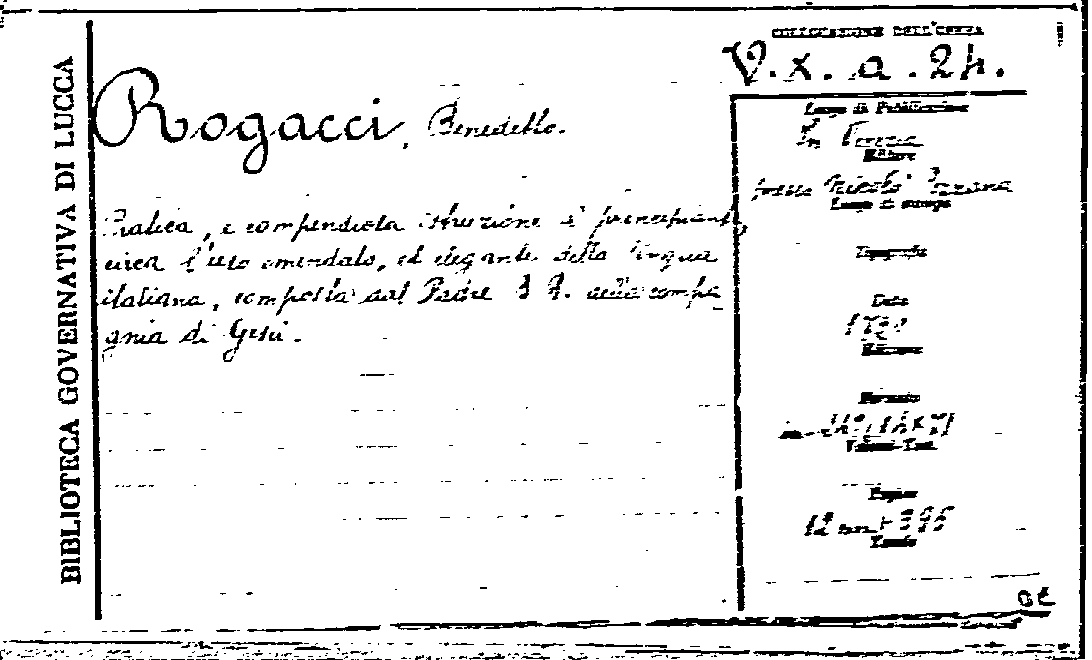 BIBLIOTECA GOVERNATIVA DI LUCCA
COLLOCAZIONE DELL'OPERA
V. x. a. 24.
Rogacci, Benedetto.
Pratica, e compendiosa istruzione a' principianti,
circa l'uso emendato, ed elegante della lingua
italiana, composta dal Padre B R. della compa
gnia di Gesù.
Luogo di Pubblicazione
In Venezia
Editore
presso Nicolò Pezzana
Luogo di stampa
Tipografo
Data
Edizione
Formato
Volumi-Tomi
Pagine
12 nn +
Tavole